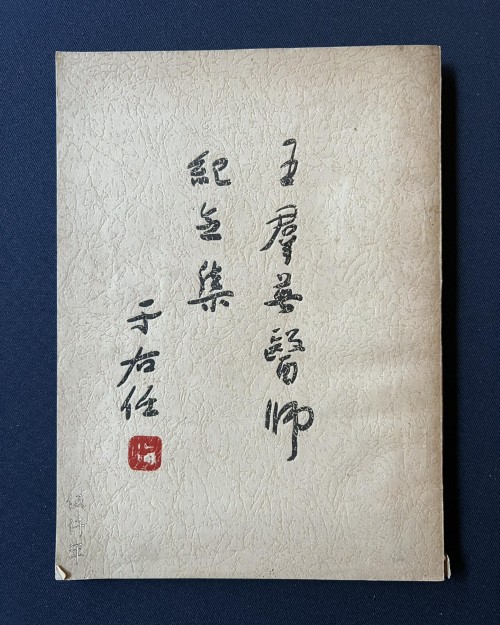 王羣英醫師
紀念集
于右任